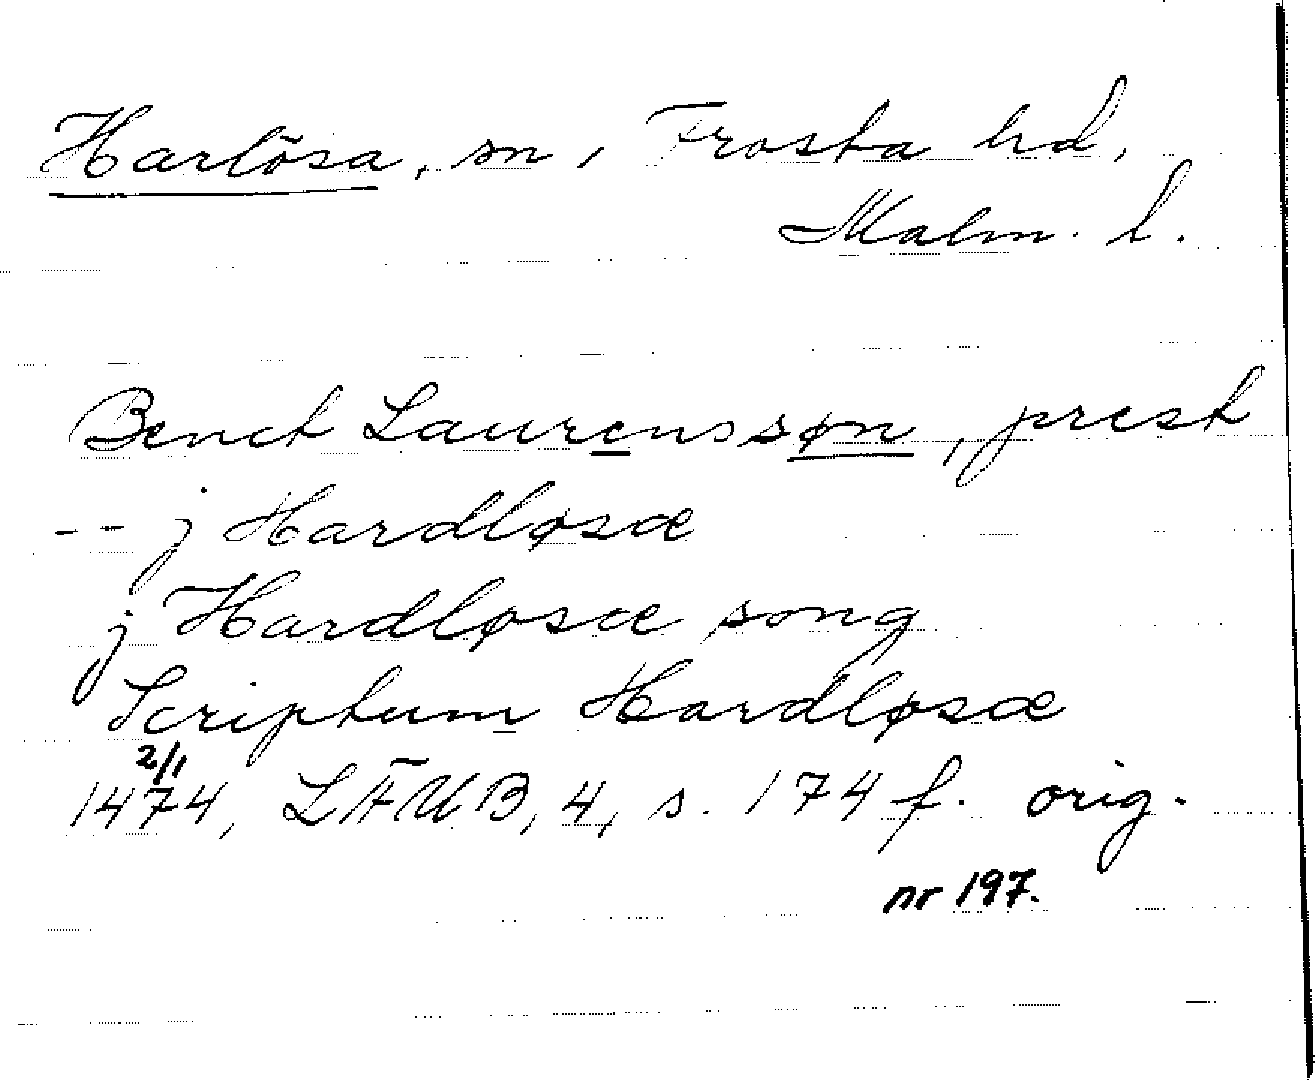 Harlösa, sn, Frosta hd,
Malm. l.
Benct Laurenssøn, prest
-- j Hardløsæ
j Hardløsæ song
Scriptum Hardløsæ
2/1
1474, LÄUB, 4, s. 174 f. orig.
nr 197.